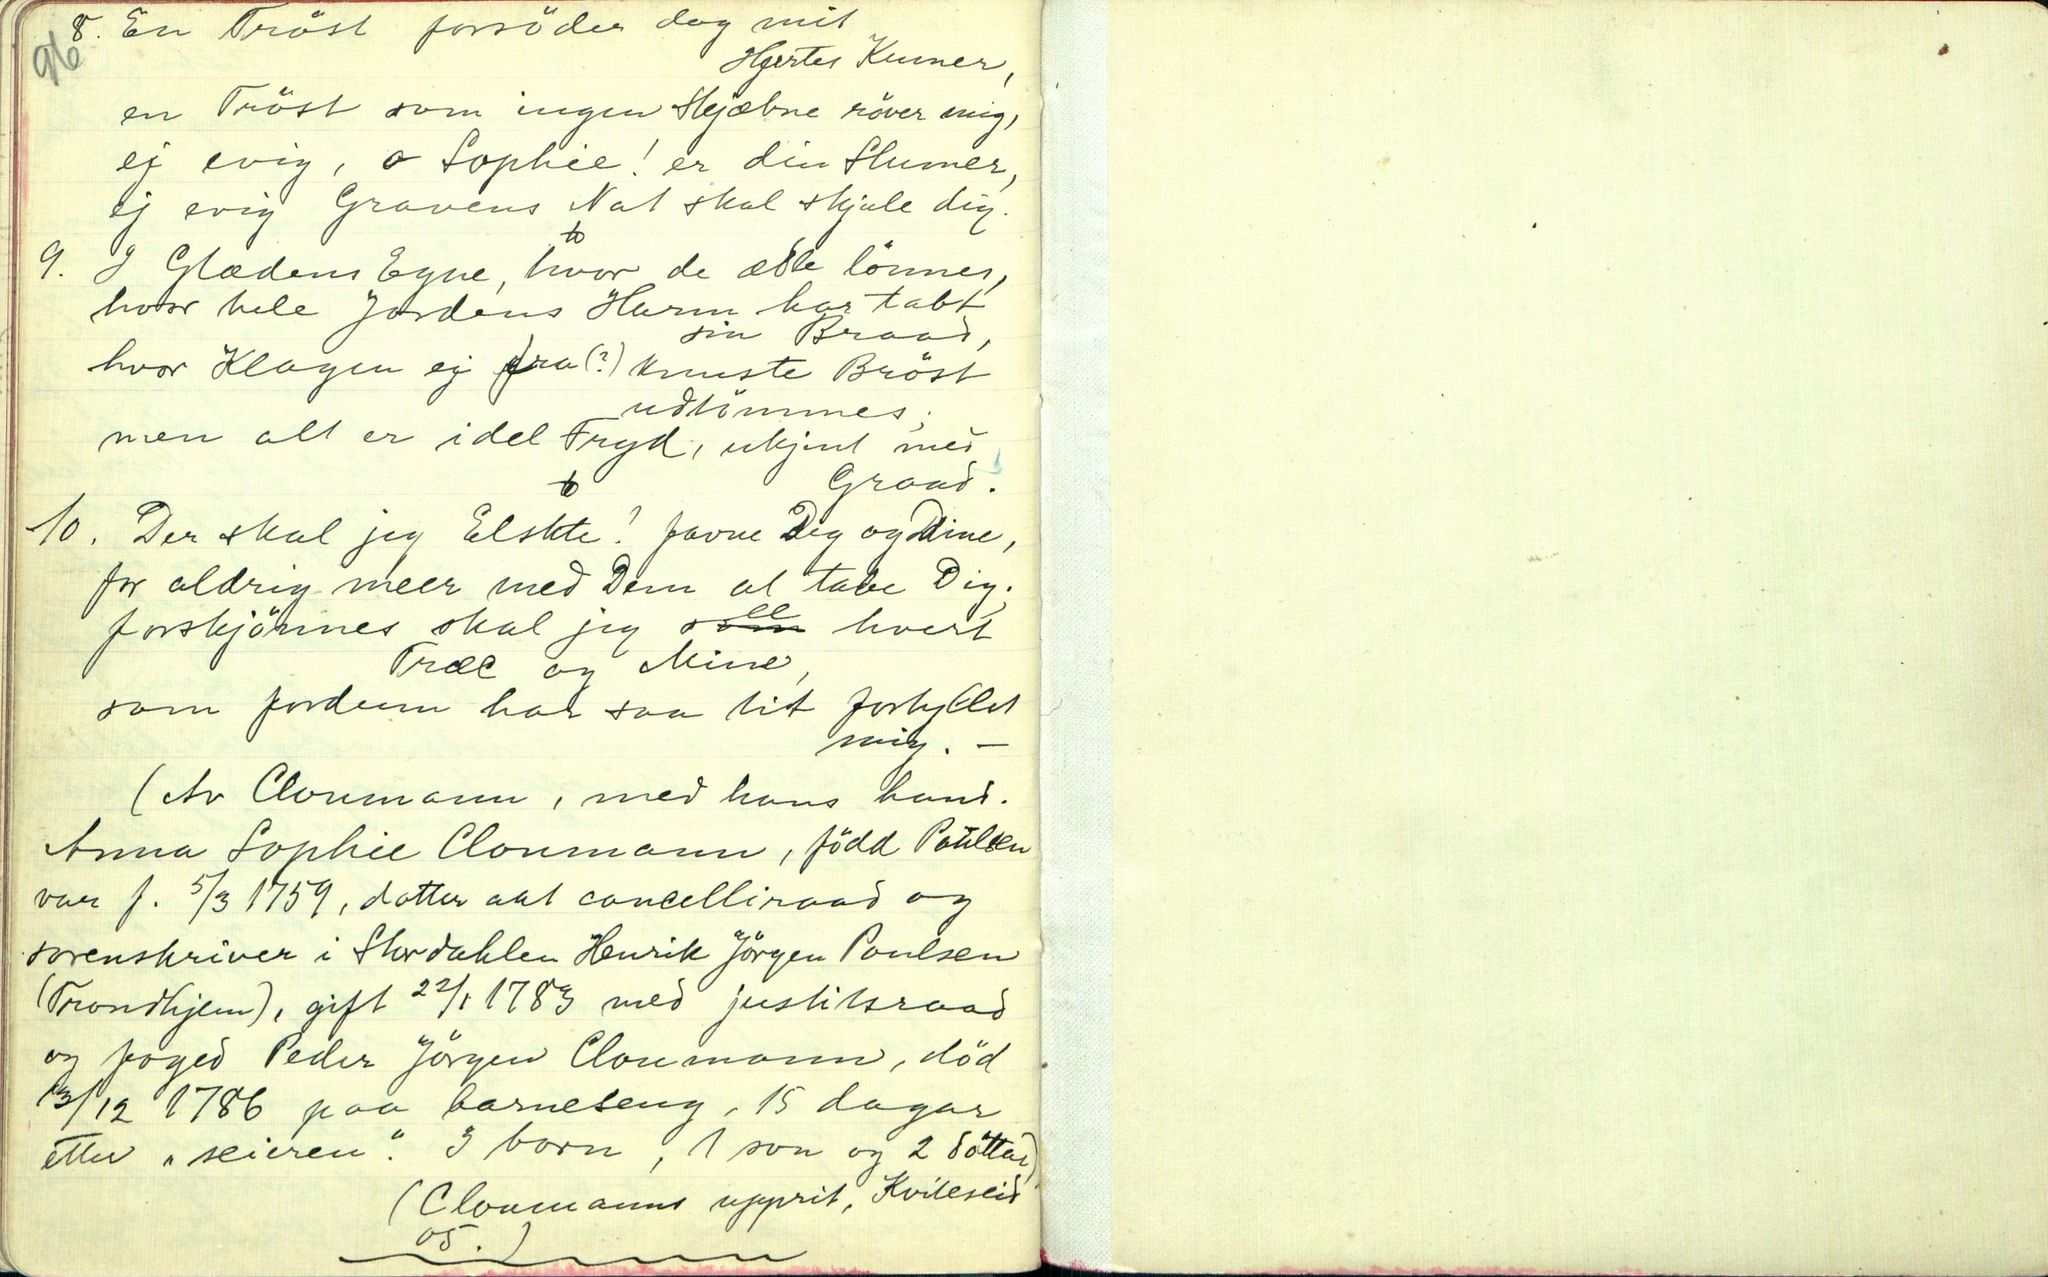 96
8. En Tröst forsöder dog mit
Hjertes Kumer,
en Tröst som ingen Skjæbne röver mig,
ej evig, o Sophie! er din Slumer,
ej evig Gravens Nat skal skjule dig.
9. I Glædens Egne, hvor de ædle lönnes,
hvor hele Jordens Harm har tabt
sin Braad,
hvor Klagen ej fra (?) knuste Bröst
udtömmes,
men alt er idel Fryd, ukjent med
Graad.
10. Der skal jeg Elskte! favne Dig og Dine,
for aldrig meer med Dem at tabe Dig,
forskjönnes skal jeg see hvert
Træc og Mine,
som fordum har saa tit fortyllet
mig. —
(Av Cloumann, med hans hand.
Anna Sophie Cloumann, född Poulsen
var f. 5/3 1759, dotter aat cancelliraad og
sorenskriver i Stordahlen Henrik Jörgen Poulsen
(Trondhjem), gift 22/1 1783 med justitsraad
og foged Peder Jörgen Cloumann, död
13/12 1786 paa barneseng, 15 dagar
etter „seieren“. 3 born, 1 son og 2 döttar)
(Cloumanns upprit, Kviteseid
05.)